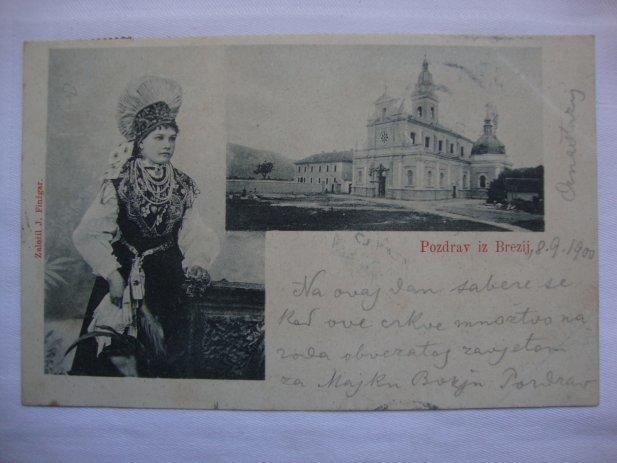 Založil J. Finžgar.
Pozdrav iz Brezij, 8.9.1900
Na ovaj dan sabere se
kod ove crkve mnoztvo na
roda obvezatoj zavjetom
za Majku Bozju Pozdrav